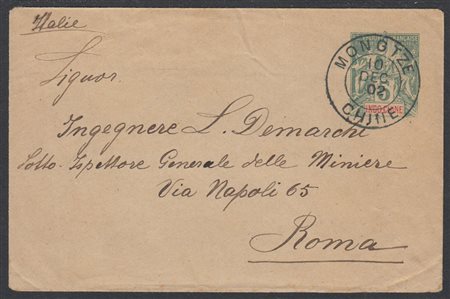 Italie
MONGTZE
10
DEC
02
CHINE
INDO-CHINE
Signor
Ingegnere L. Demarchi
Sotto-Ispettore Generale delle Miniere
Via Napoli 65
Roma